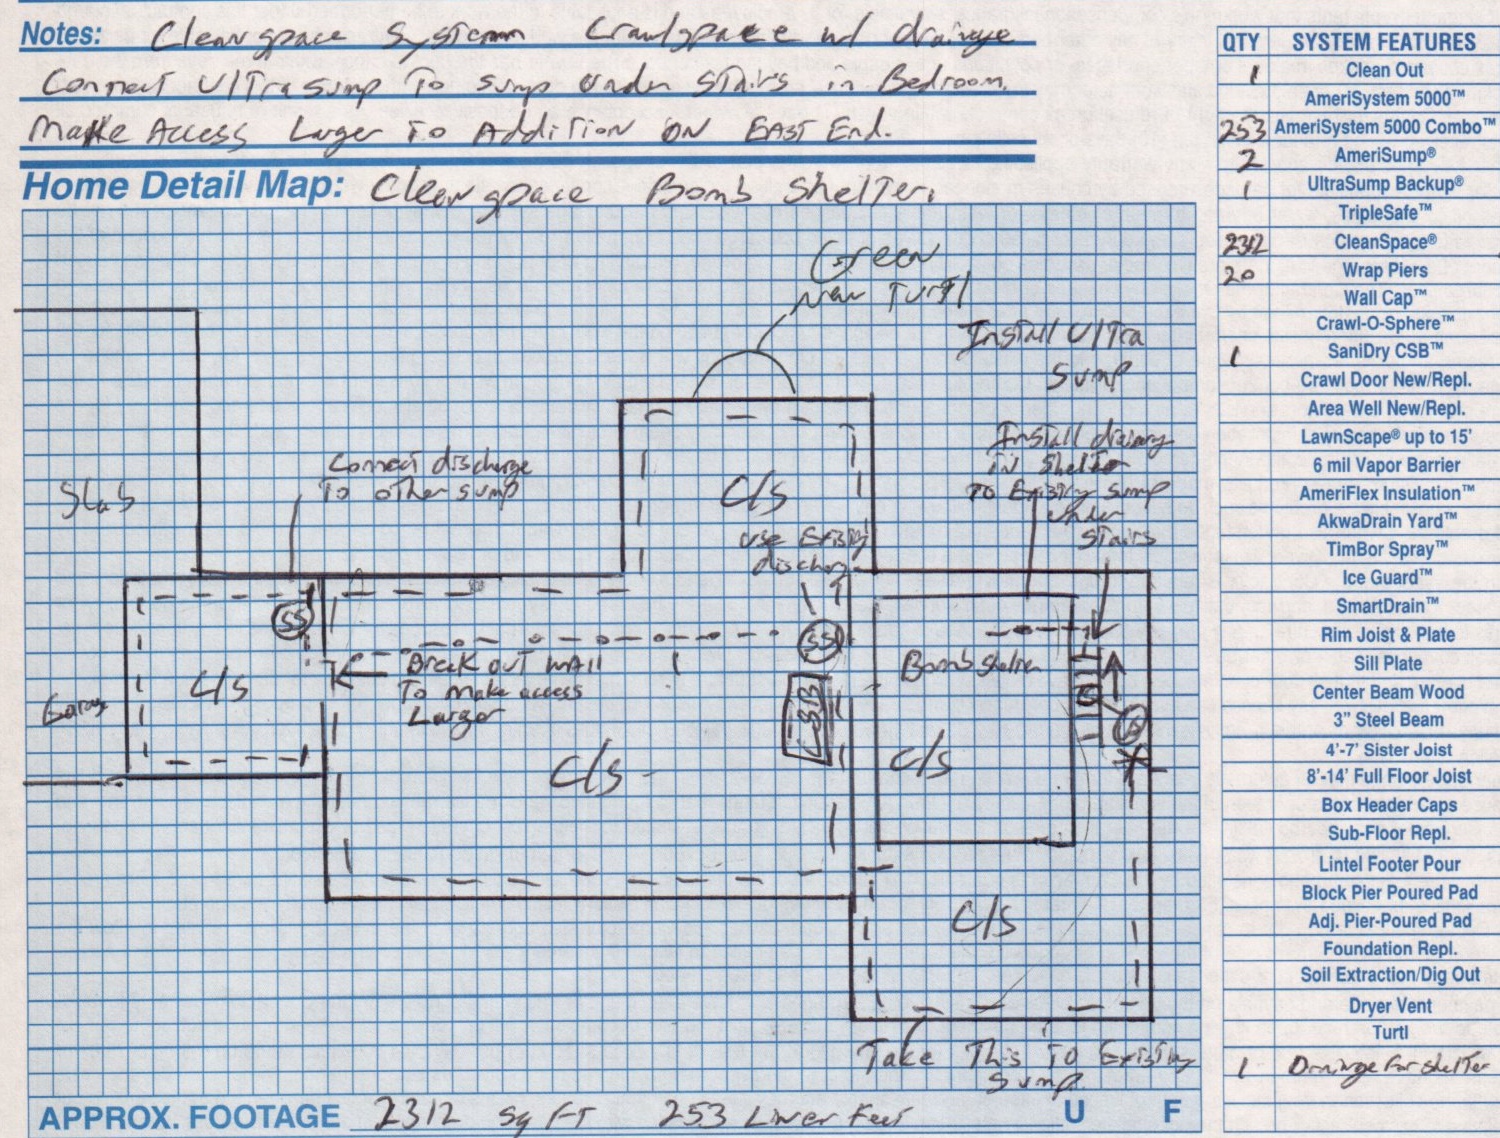 Notes: Cleanspace System Crawlspace w/ drainage
Connect UlTrasump To sump under STairs in Bedroom.
Make Access Larger To AddiTion ON EAST End.
Home Detail Map: Cleanspace Bomb ShelTer.
Green
New TurTl
Install UlTra
Sump
Install drainag
IN shelTer
To ExisTing sump
under
STairs
Connect discharge
To oTher sump
Slab
C/S
use ExisTing
discharge
SS
SS
Break ouT wAll
To make access
Larger
Bomb shelTer
C/S
Garage
CSB
C/S
C/S
C/S
Take This To ExisTing
Sump
APPROX. FOOTAGE 2312 Sq FT 253 Liner FeeT U F
QTY SYSTEM FEATURES
1 Clean Out
AmeriSystem 5000™
253 AmeriSystem 5000 Combo™
2 AmeriSump®
1 UltraSump Backup®
TripleSafe™
2312 CleanSpace®
20 Wrap Piers
Wall Cap™
Crawl-O-Sphere™
1 SaniDry CSB™
Crawl Door New/Repl.
Area Well New/Repl.
LawnScape® up to 15'
6 mil Vapor Barrier
AmeriFlex Insulation™
AkwaDrain Yard™
TimBor Spray™
Ice Guard™
SmartDrain™
Rim Joist & Plate
Sill Plate
Center Beam Wood
3" Steel Beam
4'-7' Sister Joist
8'-14' Full Floor Joist
Box Header Caps
Sub-Floor Repl.
Lintel Footer Pour
Block Pier Poured Pad
Adj. Pier-Poured Pad
Foundation Repl.
Soil Extraction/Dig Out
Dryer Vent
Turtl
1 Drainge For shelTer